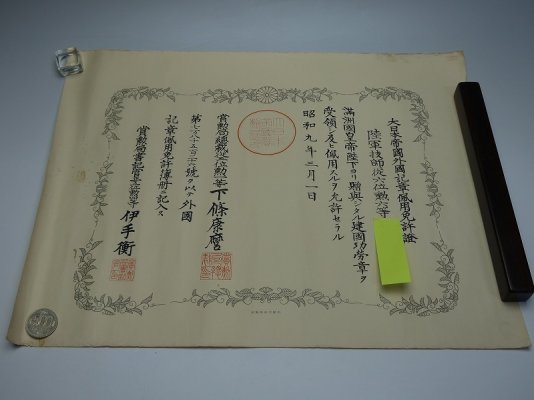 大日本帝國外國記章佩用免許證
陸軍技師從六位勲六等
滿洲國皇帝陛下ヨリ贈與シタル建國功勞章ヲ
受領シ及ヒ佩用スルヲ允許セラル
昭和九年三月一日
賞勲局總裁從位勲等下條康麿
第號ヲ以テ外國
記章佩用免許簿册ニ記入ス
賞勲局書記官伊手衡